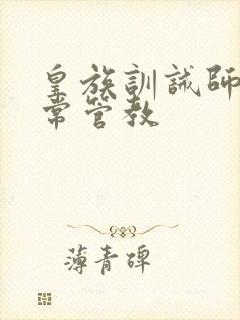 皇族訓誡師
常管教
薄青碑